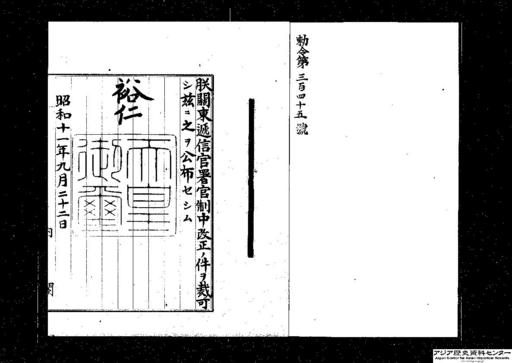 勅令第三百四十五號
朕關東遞信官署官制中改正ノ件ヲ裁可
シ茲ニ之ヲ公布セシム
裕仁
天皇御璽
昭和十一年九月二十二日
内閣
アジア歴史資料センター
Japan Center for Asian Historical Records